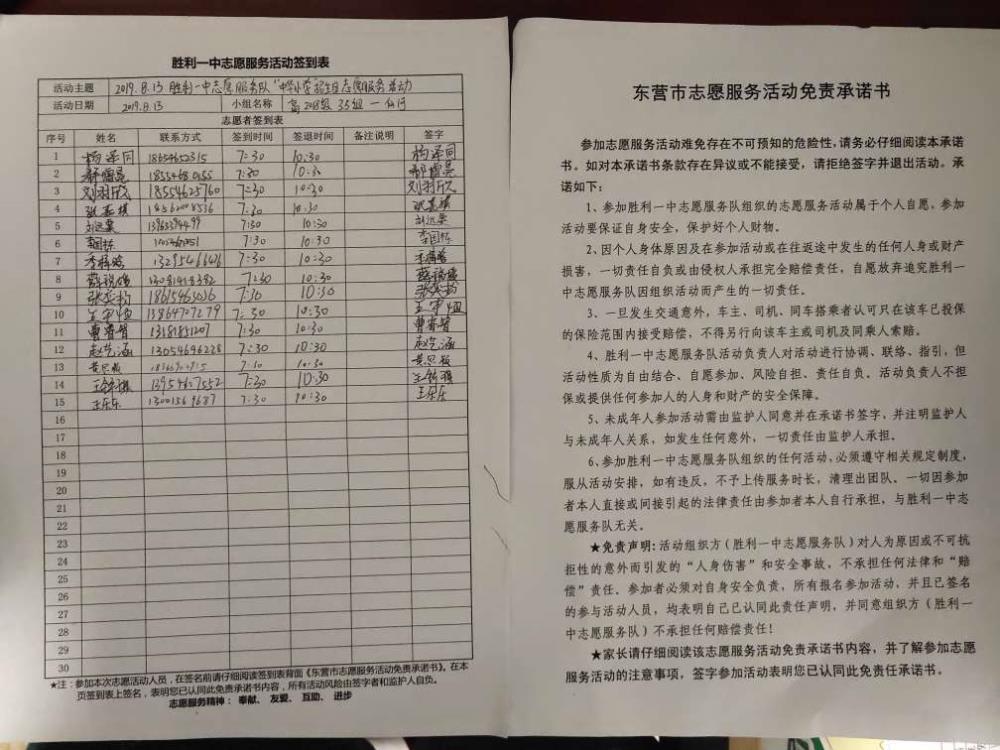 胜利一中志愿服务活动签到表
活动主题 2019.8.13 胜利一中志愿服务队"中华小学"招生日志愿服务活动
活动日期 2019.8.13 小组名称 高2018级35组
志愿者签到表
序号 姓名 联系方式 签到时间 签退时间 备注说明 签字
1 杨泽同 18654652315 7:30 10:30 杨泽同
2 7:30 10:30
3 刘羽欣 18554625760 7:30 10:30 刘羽欣
4 7:30 10:30
5 7:30 10:30
6 李国栋 7:30 10:30 李国栋
7 7:30 10:30
8 7:30 10:30
9 7:30 10:30
10 13864707279 7:30 10:30
11 曹睿智 13181831207 7:30 10:30 曹睿智
12 赵艺涵 13054696228 7:30 10:30 赵艺涵
13 7:30 10:30
14 13954607552 7:30 10:30
15 王乐乐 13001569687 7:30 10:30 王乐乐
16
17
18
19
20
21
22
23
24
25
26
27
28
29
30
★注:参加本次志愿活动人员,在签名前请仔细阅读签到表背面《东营市志愿服务活动免责承诺书》。在本
页签到表上签名,表明您已认同此免责承诺书内容,所有活动风险由签字者和监护人自负。
志愿服务精神: 奉献、 友爱、 互助、 进步
东营市志愿服务活动免责承诺书
参加志愿服务活动难免存在不可预知的危险性,请务必仔细阅读本承诺
书。如对本承诺书条款存在异议或不能接受,请拒绝签字并退出活动。承
诺如下:
1、参加胜利一中志愿服务队组织的志愿服务活动属于个人自愿,参加
活动要保证自身安全,保护好个人财物。
2、因个人身体原因及在参加活动或在往返途中发生的任何人身或财产
损害,一切责任自负或由侵权人承担完全赔偿责任,自愿放弃追究胜利一
中志愿服务队因组织活动而产生的一切责任。
3、一旦发生交通意外,车主、司机、同车搭乘者认可只在该车已投保
的保险范围内接受赔偿,不得另行向该车主或司机及同乘人索赔。
4、胜利一中志愿服务队活动负责人对活动进行协调、联络、指引,但
活动性质为自由结合、自愿参加、风险自担、责任自负、活动负责人不担
保或提供任何参加人的人身和财产的安全保障。
5、未成年人参加活动需由监护人同意并在承诺书签字,并注明监护人
与未成年人关系,如发生任何意外,一切责任由监护人承担。
6、参加胜利一中志愿服务队组织的任何活动,必须遵守相关规定制度,
服从活动安排,如有违反,不予上传服务时长,清理出团队。一切因参加
者本人直接或间接引起的法律责任由参加者本人自行承担,与胜利一中志
愿服务队无关。
★免责声明:活动组织方(胜利一中志愿服务队)对人为原因或不可抗
拒性的意外而引发的“人身伤害”和安全事故,不承担任何法律和“赔
偿”责任。参加者必须对自身安全负责,所有报名参加活动、并且已签名
的参与活动人员,均表明自己已认同此责任声明,并同意组织方(胜利一
中志愿服务队)不承担任何赔偿责任!
★家长请仔细阅读该志愿服务活动免责承诺书内容,并了解参加志愿
服务活动的注意事项,签字参加活动表明您已认同此免责任承诺书。